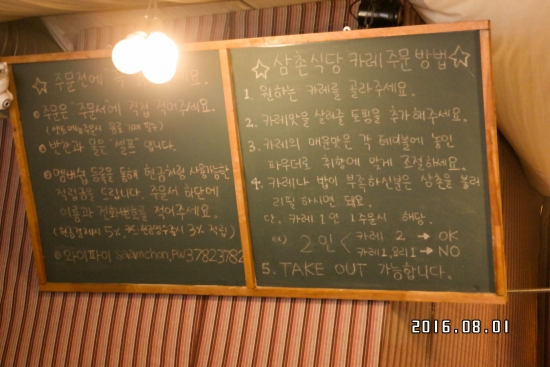 ☆ 주문전에
● 주문은 "주문서"에 직접 적어주세요.
● 반찬과 물은 "셀프" 입니다.
● 멤버쉽 등록을 통해 현금처럼 사용가능한
적립금을 드립니다. 주문서 하단에
이름과 전화번호를 적어주세요.
(현금결제시 5%, 카드, 현금영수증시 3% 적립)
● 와이파이 samchon, PW 37823782
☆ 삼촌식당 카레 주문 방법 ☆
1. 원하는 카레를 골라주세요.
2. 카레맛을 살려줄 토핑을 추가해주세요.
3. 카레의 매운맛은 각 테이블에 놓인
파우더로 취향에 맞게 조절하세요.
4. 카레나 밥이 부족하신분은 삼촌을 불러
리필 하시면 돼요.
단. 카레 1인 1주문시 해당.
ex) 2인 < 카레 2 → OK
카레1, 요리1 → NO
5. TAKE OUT 가능합니다.
2016.08.01